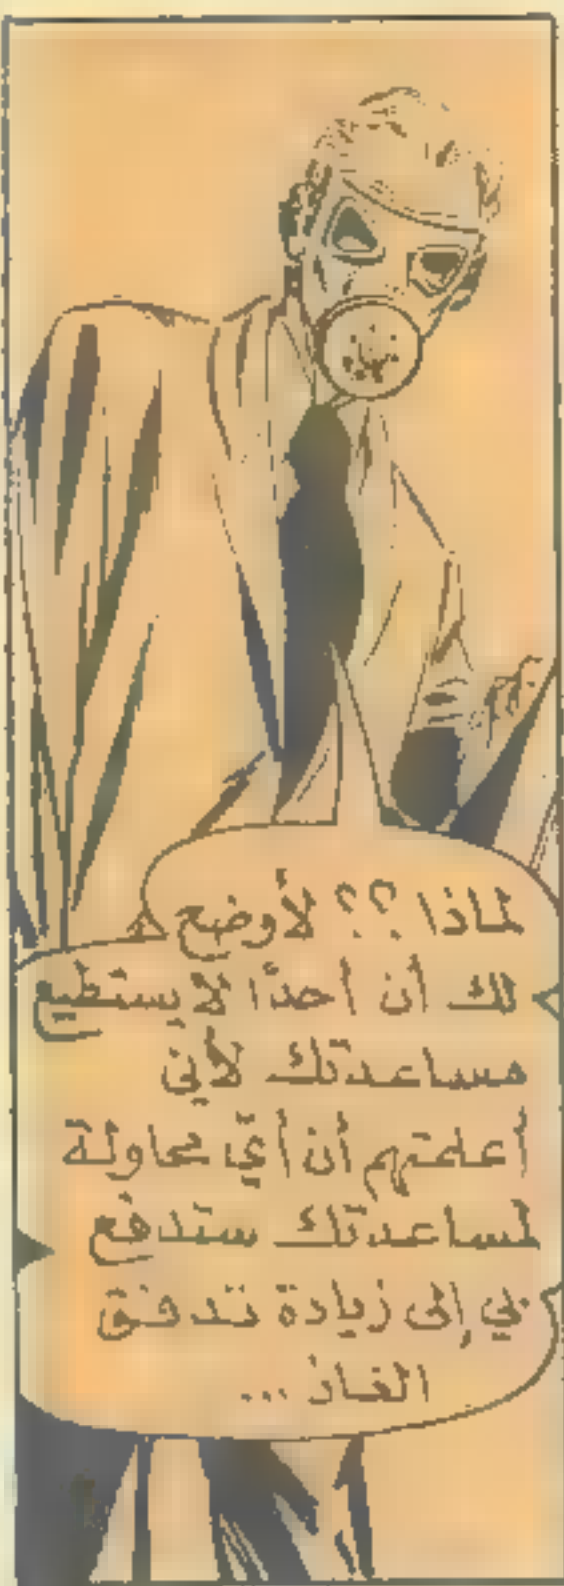 لماذا ؟؟ لأوضح
لك أن أحدًا لا يستطيع
مساعدتك لأني
أعلمتهم أن أيّ محاولة
لمساعدتك ستدفع
بي إلى زيادة تدفق
الغاز ...